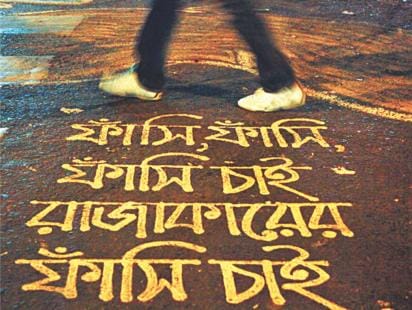 ফাঁসি, ফাঁসি,
ফাঁসি চাই
রাজাকারের
ফাঁসি চাই